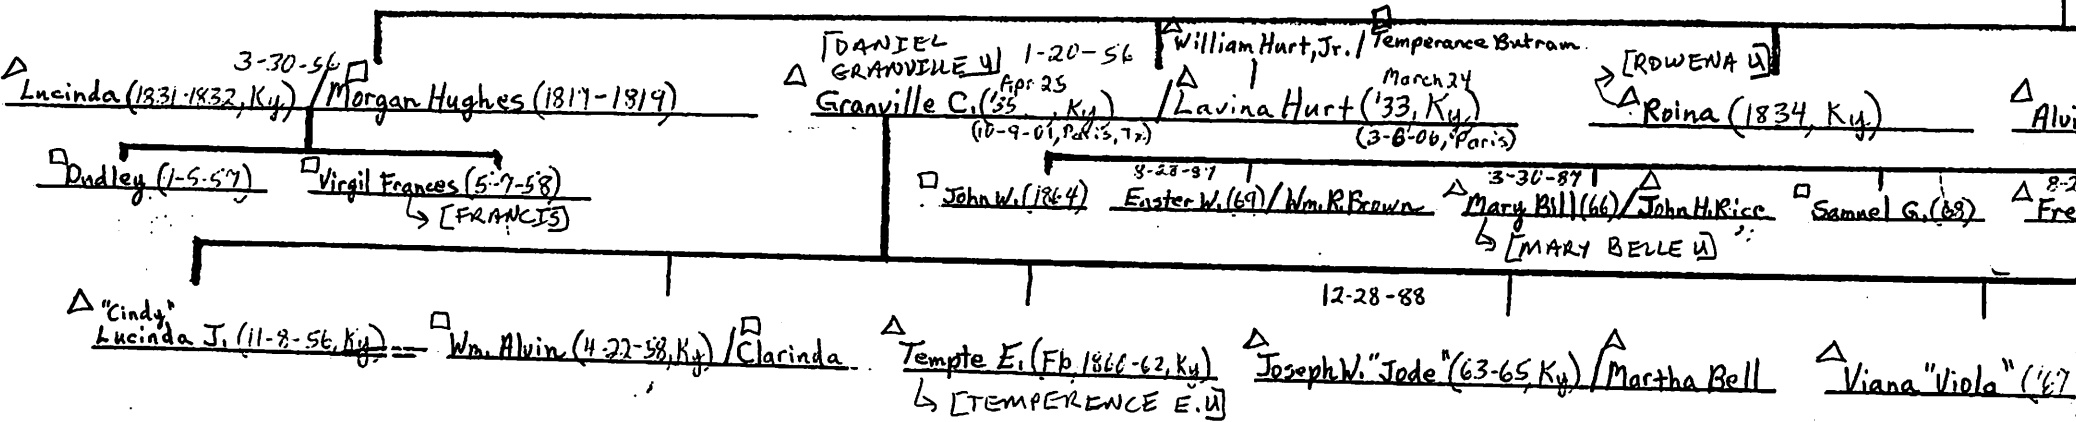 3-30-56
Lucinda (1831-1832, Ky) / Morgan Hughes (1817-1819)
[DANIEL
GRANVILLE U] 1-20-56
Apr 25
Granville C. ('35, Ky) / Lavina Hurt ('33, Ky.)
(10-9-01, Paris, Tx)
William Hurt, Jr. / Temperance Butram
March 24
(3-6-06, Paris)
[ROWENA U]
Roina (1834, Ky.)
Alvi
Dudley (1-5-57)
Virgil Frances (5-7-58)
[FRANCIS]
John W. (1864)
8-28-87
Easter W. (69) / Wm. R. Brown
3-30-87
Mary Bill (66) / John H. Rice
[MARY BELLE U]
Samuel G. (68)
8-2
Fre
"Cindy"
Lucinda J. (11-8-56, Ky)
Wm. Alvin (4-22-58, Ky) / Clarinda
Tempte E. (Fb, 1860-62, Ky)
[TEMPERENCE E. U]
12-28-88
Joseph W. "Jode" (63-65, Ky) / Martha Bell
Viana "Viola" ('67